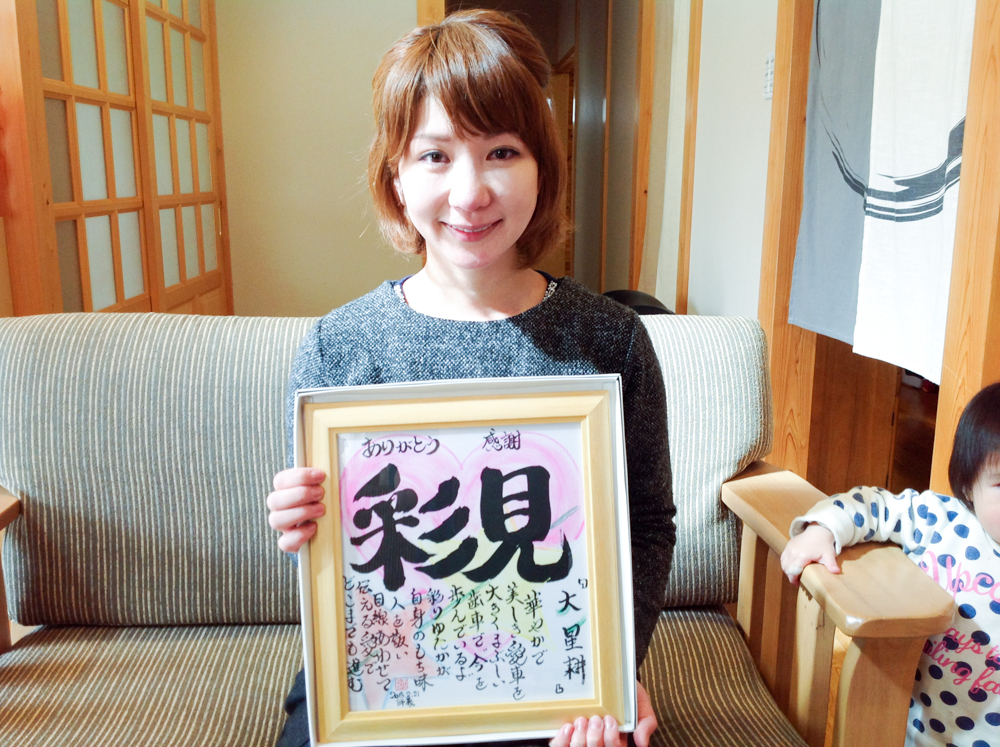 ありがとう 感謝
彩見
大星耕
華やかで
美しき愛車を
大きくまぶしい
歯車で今を
歩んでいるよ
彩りゆたかが
自身のもち味
人を敬い
目線あわせて
伝える姿で
どこまでも進む